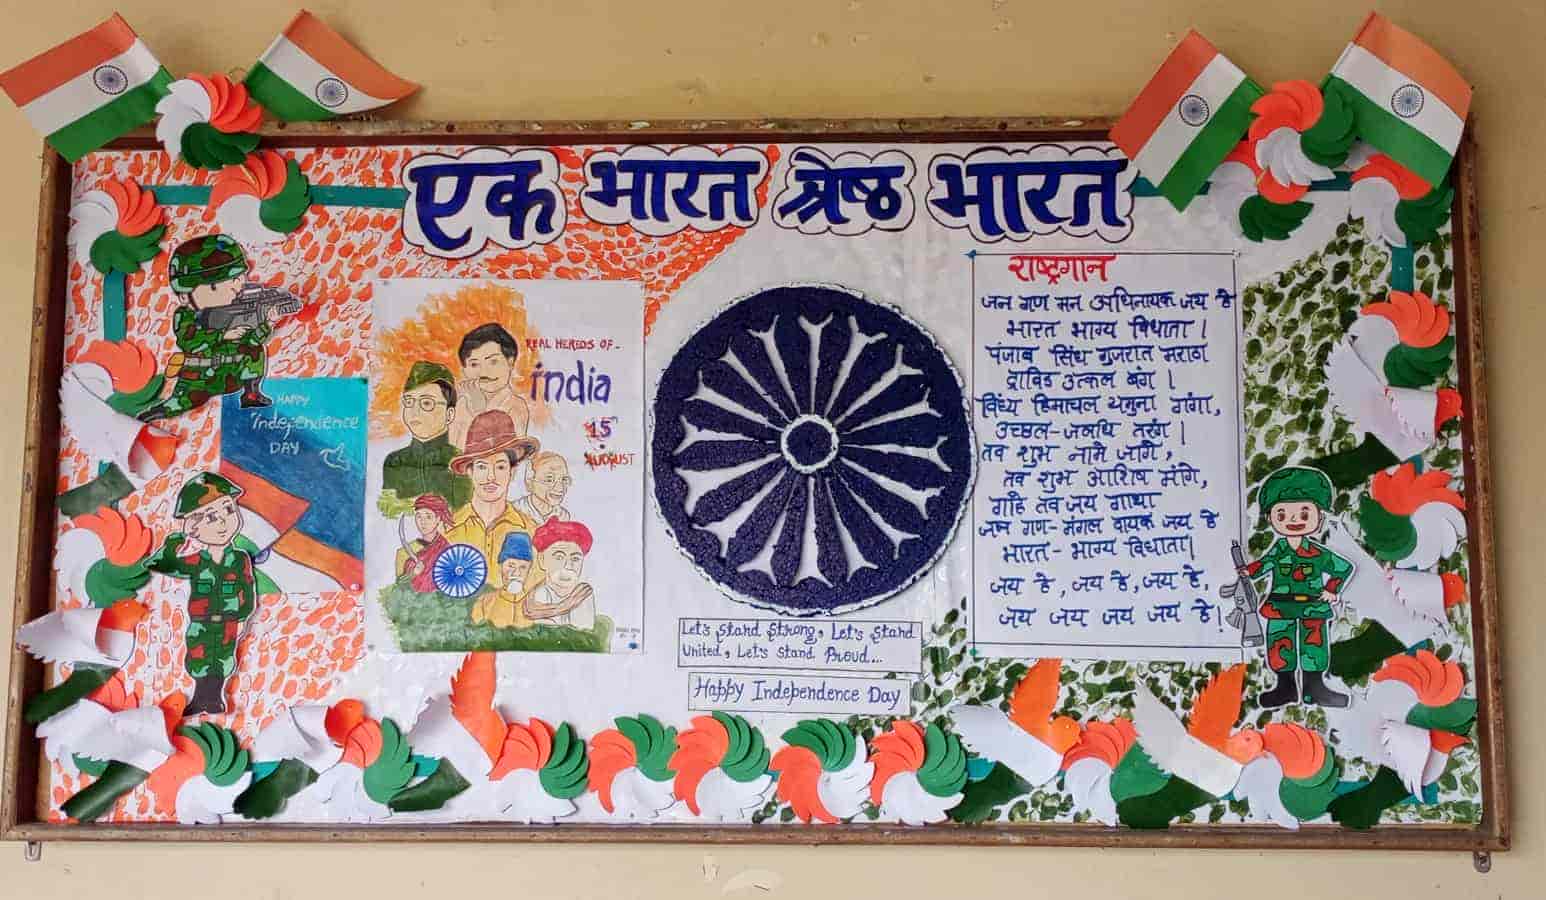 एक भारत श्रेष्ठ भारत
HAPPY
Independence
DAY
REAL HEREOS OF -
India
15
AUGUST
Let's Stand Strong, Let's Stand
United, Let's Stand Proud...
Happy Independence Day
राष्ट्रगान
जन गण मन अधिनायक जय हे
भारत भाग्य विधाता।
पंजाब सिंध गुजरात मराठा
द्राविड उत्कल बंग।
विंध्य हिमाचल यमुना गंगा,
उच्छल-जलधि तरंग।
तव शुभ नामे जागे,
तव शुभ आशिष मांगे,
गाहे तव जय गाथा
जन गण-मंगल दायक जय हे
भारत-भाग्य विधाता।
जय हे, जय हे, जय हे,
जय जय जय जय हे!